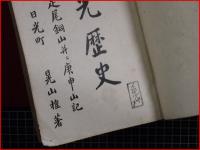 光歴史
足尾銅山并ニ庚申山記
日光町
晃山植著